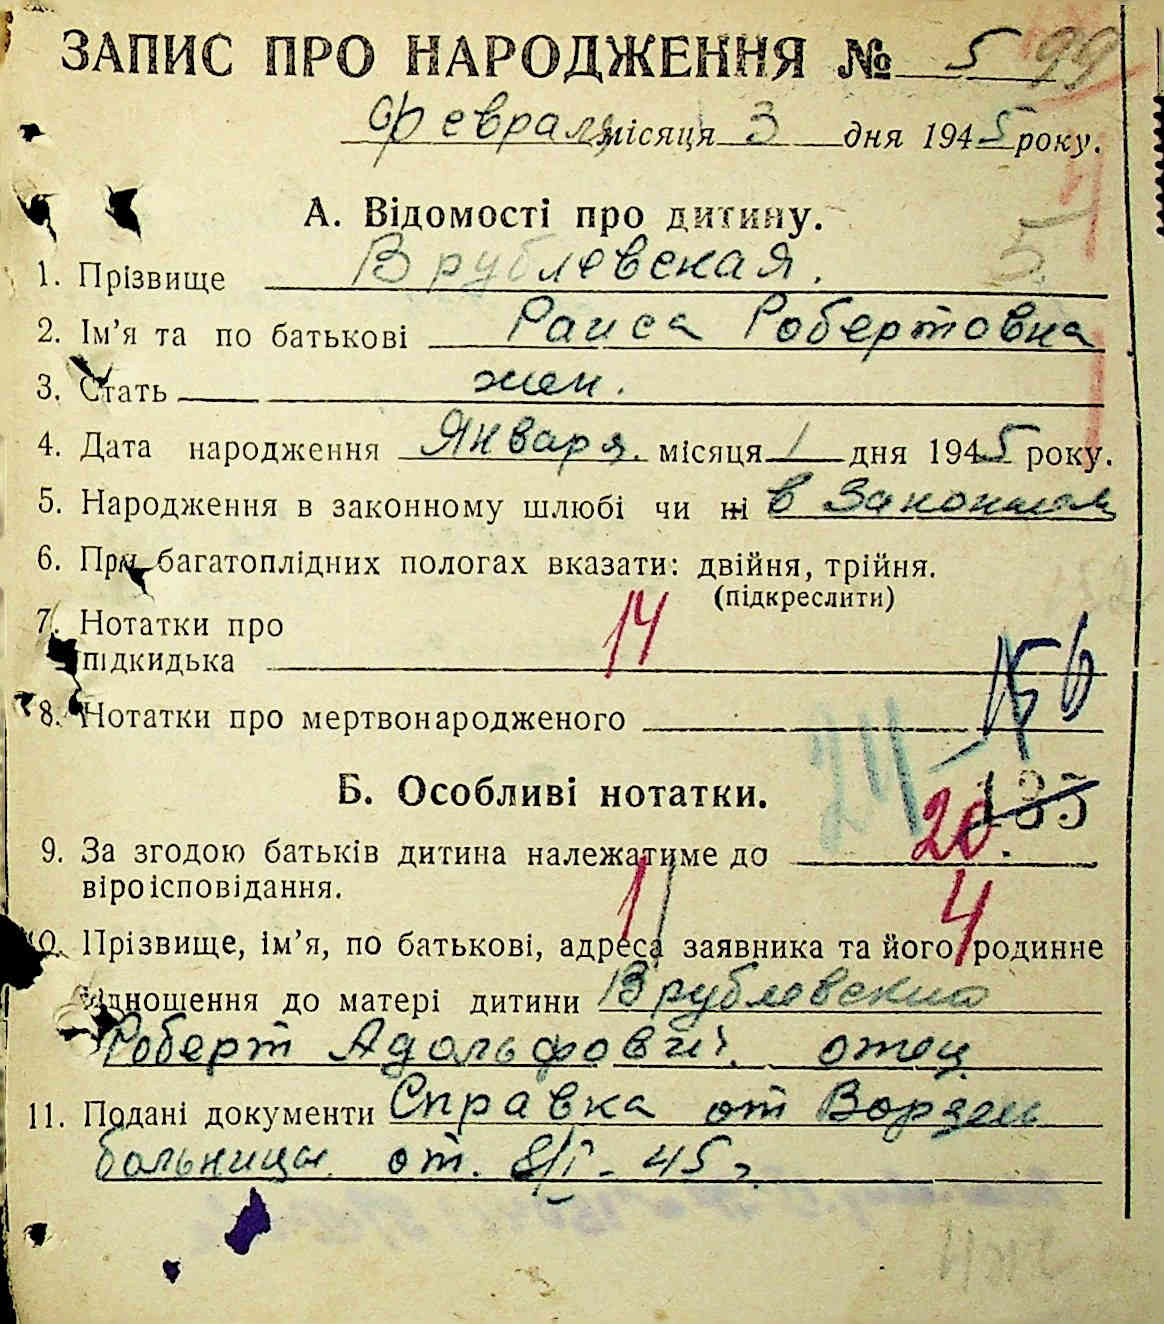 ЗАПИС ПРО НАРОДЖЕННЯ № 5 99
Февраля місяця 3 дня 1945 року.
А. Відомості про дитину.
5
1. Прізвище Врублевская.
2. Ім’я та по батькові Раиса Робертовна
3. Стать жен.
4. Дата народження Января місяця 1 дня 1945 року.
5. Народження в законному шлюбі чи ні в законном
6. При багатоплідних пологах вказати: двійня, трійня.
(підкреслити)
7. Нотатки про
підкидька
14
8. Нотатки про мертвонародженого
Б. Особливі нотатки.
24
135
20
9. За згодою батьків дитина належатиме до
віроісповідання.
4
10. Прізвище, ім’я, по батькові, адреса заявника та його родинне
відношення до матері дитини Врублевский
Роберт Адольфович отец
11. Подані документи Справка от
больницы от. 8/I - 45 г.